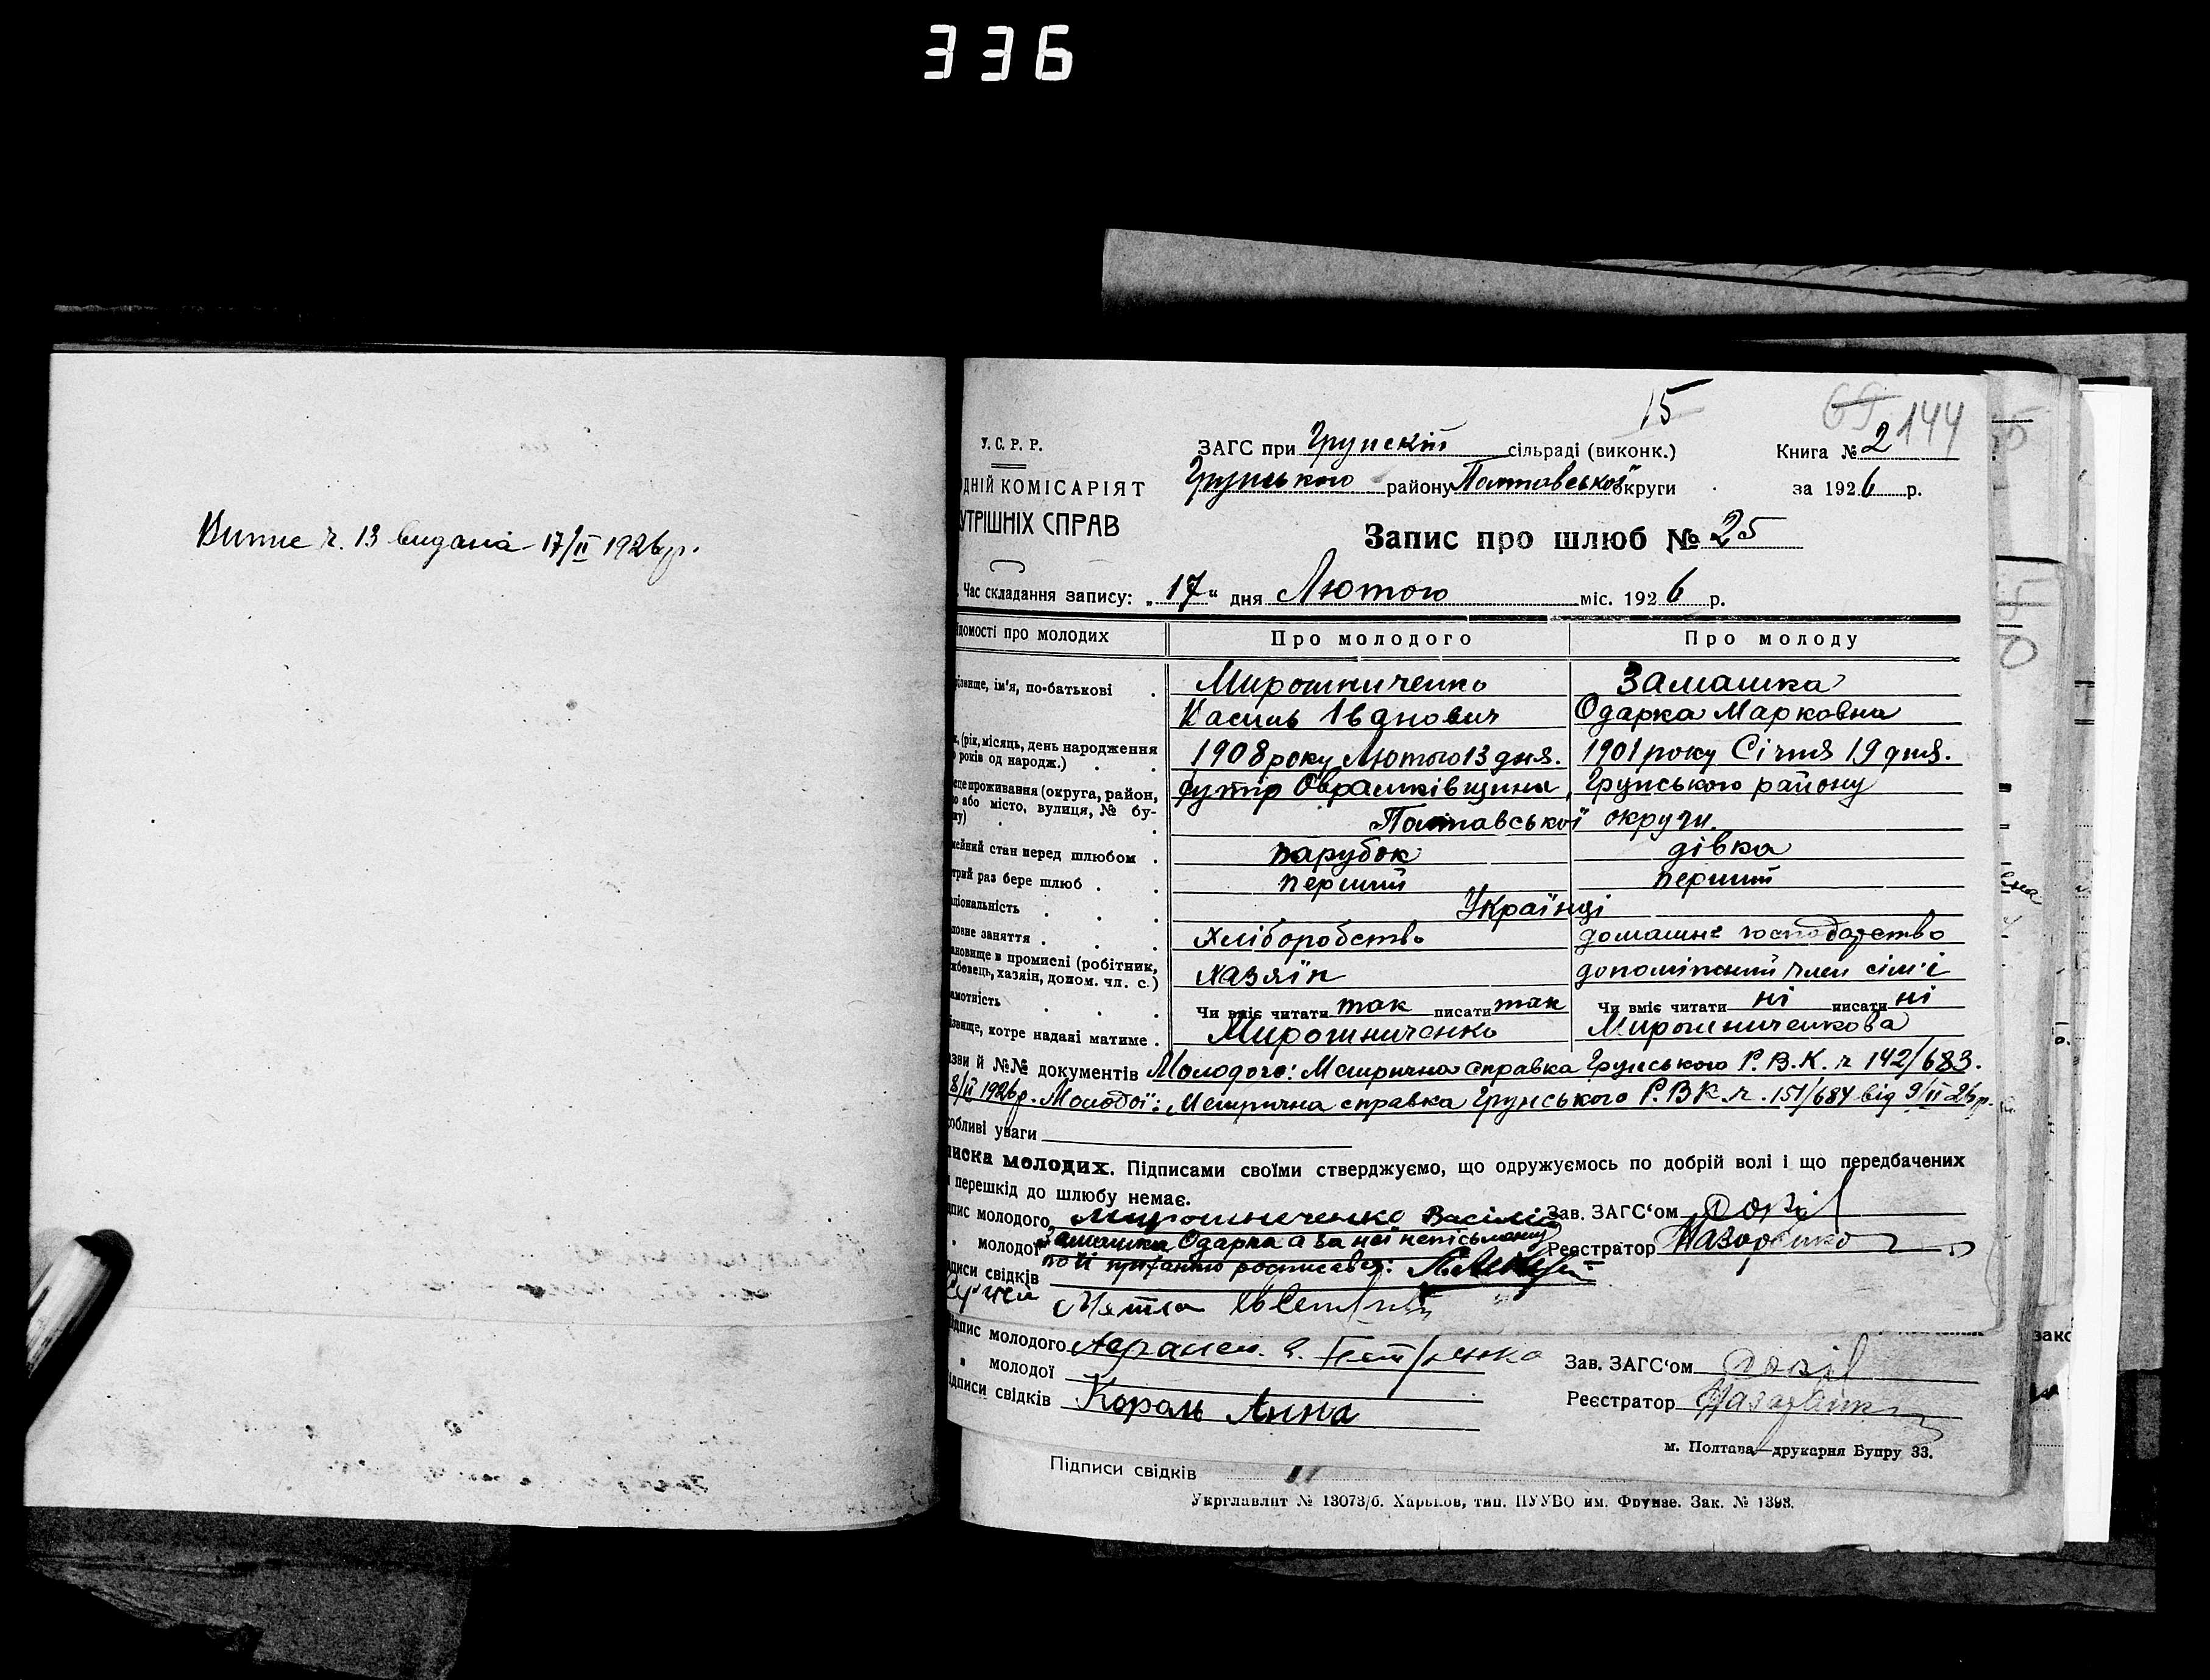 336
Витяг ч. 13 видана 17/II 1926 р.
15
69 144
У. С. Р. Р.
ЗАГС при Грунській сільраді (виконк.)
Книга № 2
ДНІЙ КОМІСАРІЯТ
Грунського району Полтавської округи
за 1926 р.
УТРІШНІХ СПРАВ
Запис про шлюб № 25
Час складання запису: „17“ дня Лютого міс. 1926 р.
ідомості про молодих Про молодого Про молоду
ізвище, ім'я, по-батькові . Мирошниченко Замашка
Василь Іванович Одарка Марковна
(рік, місяць, день народження
років од народж.) . . 1908 року Лютого 13 дня. 1901 року Січня 19 дня.
це проживання (округа, район, хутір Оврамківщина, Грунського району
або місто, вулиця, № бу-
Полтавської округи.
мейний стан перед шлюбом . парубок дівка
трий раз бере шлюб . . перший перший
ціональність . . . Українці
ловне заняття . . . хліборобство домашнє господарство
ановище в промислі (робітник,
жбовець, хазяін, допом. чл. с.) хазяїн допоміжний член сім'ї
амотність . . . Чи вміє читати так писати так Чи вміє читати ні писати ні
ізвище, котре надані матиме . Мирошниченко Мирошниченкова
зви й №№ документів Молодого: Метрична справка Грунського Р. В. К. ч 142/683.
8/II 1926 р. Молодої: Метрична справка Грунського Р. В К. ч. 151/684 від 9/II 26 р.
собливі уваги
писка молодих. Підписами своїми стверджуємо, що одружуємось по добрій волі і що передбачених
перешкід до шлюбу немає.
дпис молодого Мирошниченко Васілій Зав. ЗАГС'ом
„ молодої Замашка Одарка а за неї неписьменну Реєстратор Назаренко
по її проханню росписався:
дписи свідків
Мятла
ідпис молодого Зав. ЗАГС'ом
„ молодої
ідписи свідків Король Анна Реєстратор
м. Полтава—друкарня Бупру 33.
Підписи свідків
Укрглавлит № 13073/б. Харьков, тип. ПУУВО им. Фрунзе. Зак. № 1393.